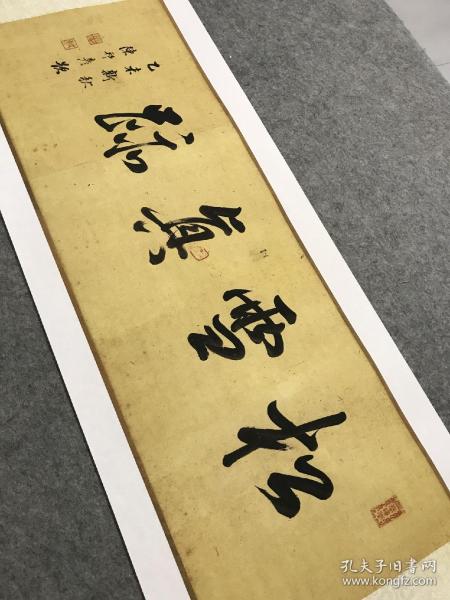 松雪真跡
乙未新秋
陳邦彥
孔夫子旧书网
www.kongfz.com